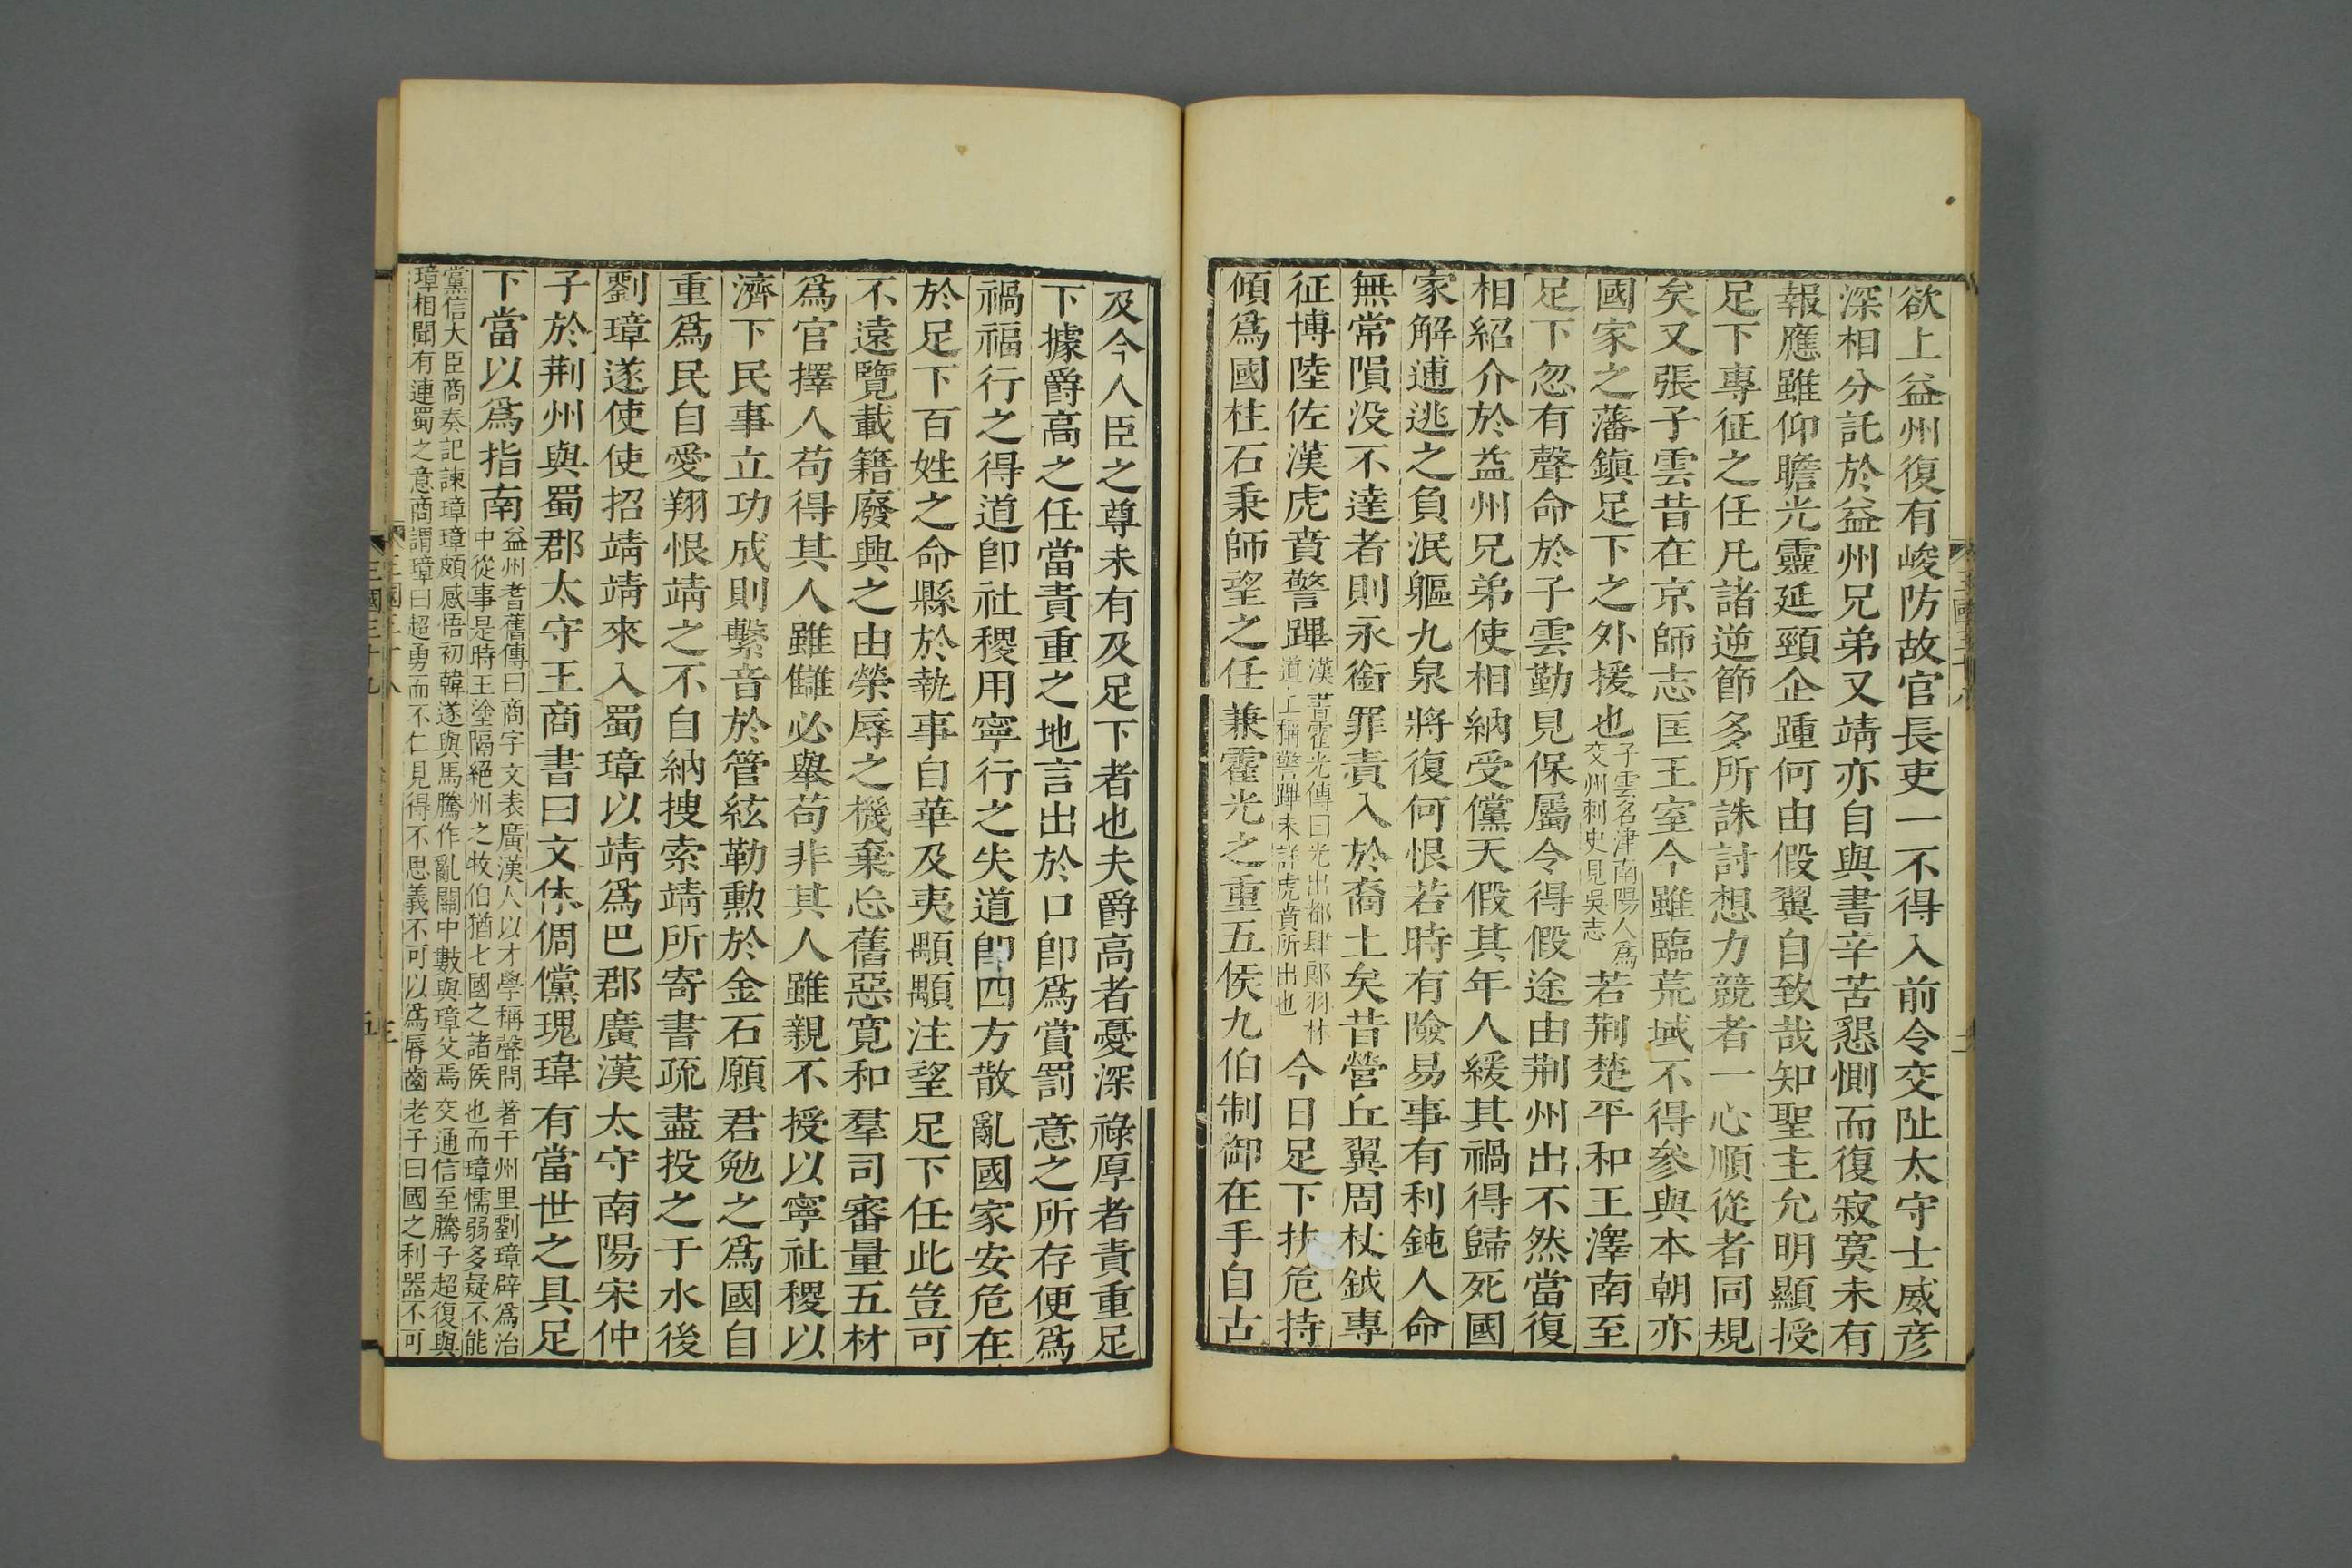 欲上益州復有峻防故官長吏一不得入前令交阯太守士威彦
深相分託於益州兄弟又靖亦自與書辛苦懇惻而復寂寞未有
報應雖仰瞻光靈延頸企踵何由假翼自致哉知聖主允明顯授
足下專征之任凡諸逆節多所誅討想力競者一心順從者同規
矣又張子雲昔在京師志匡王室今雖臨荒域不得參與本朝亦
國家之藩鎮足下之外援也子雲名津南陽人爲交州刺史見吳志若荆楚平和王澤南至
足下忽有聲命於子雲勤見保屬令得假途由荆州出不然當復
相紹介於益州兄弟使相納受儻天假其年人緩其禍得歸死國
家解逋逃之負泯軀九泉將復何恨若時有險易事有利鈍人命
無常隕没不達者則永銜罪責入於裔土矣昔營丘翼周杖鉞專
征博陸佐漢虎賁警蹕漢書霍光傳曰光出都肄郎羽林道上稱警蹕未詳虎賁所出也今日足下扶危持
傾爲國柱石秉師望之任兼霍光之重五侯九伯制御在手自古
及今人臣之尊未有及足下者也夫爵高者憂深祿厚者責重足
下據爵高之任當責重之地言出於口即爲賞罰意之所存便爲
禍福行之得道即社稷用寧行之失道即四方散亂國家安危在
於足下百姓之命縣於執事自華及夷顒顒注望足下任此豈可
不遠覽載籍廢興之由榮辱之機棄忘舊惡寬和羣司審量五材
爲官擇人苟得其人雖讎必舉苟非其人雖親不授以寧社稷以
濟下民事立功成則繫音於管絃勒勳於金石願君勉之爲國自
重爲民自愛翔恨靖之不自納搜索靖所寄書疏盡投之于水後
劉璋遂使使招靖靖來入蜀璋以靖爲巴郡廣漢太守南陽宋仲
子於荆州與蜀郡太守王商書曰文休倜儻瑰瑋有當世之具足
下當以爲指南益州耆舊傳曰商字文表廣漢人以才學稱聲問著于州里劉璋辟爲治中從事是時王塗隔絕州之牧伯猶七國之諸侯也而璋懦弱多疑不能
黨信大臣商奏記諫璋璋頗感悟初韓遂與馬騰作亂關中數與璋父焉交通信至騰子超復與璋相聞有連蜀之意商謂璋曰超勇而不仁見得不思義不可以爲脣齒老子曰國之利器不可